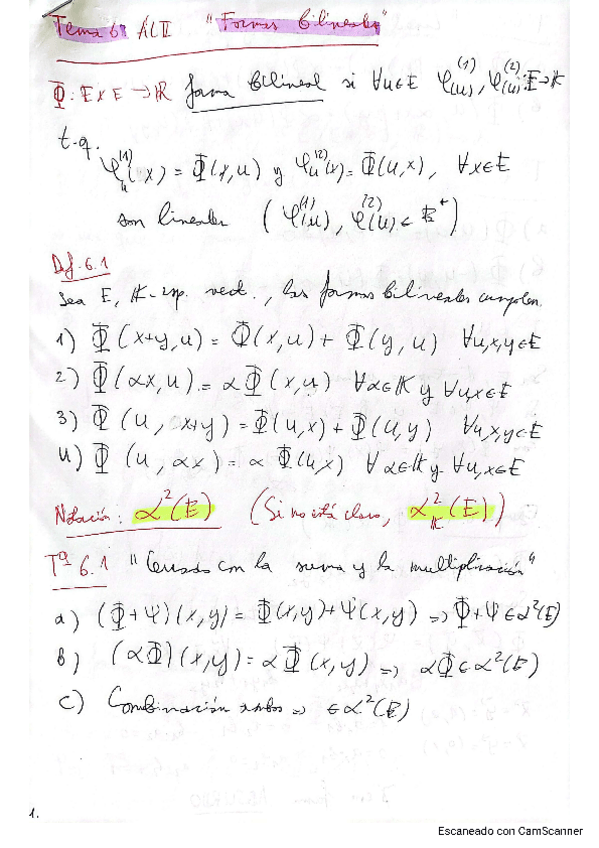 Tema 6: ALII "Formas bilineales"
Φ: E×E → K forma bilineal si ∀u∈E φ(u)^(1), φ(u)^(2): E→K
t.q.
φu^(1)(x) = Φ(x,u) y φu^(2)(x) = Φ(u,x), ∀x∈E
son lineales (φ(u)^(1), φ(u)^(2) ∈ E*)
Def. 6.1
Sea E, K-esp. vect., las formas bilineales cumplen
1) Φ(x+y,u) = Φ(x,u) + Φ(y,u) ∀u,x,y∈E
2) Φ(αx,u) = αΦ(x,u) ∀α∈K y ∀u,x∈E
3) Φ(u, x+y) = Φ(u,x) + Φ(u,y) ∀u,x,y∈E
4) Φ(u, αx) = α Φ(u,x) ∀α∈K y ∀u,x∈E
Notación: L²(E) (Si no está claro, L²_K(E))
Tª 6.1 "Cerrado con la suma y la multiplicación"
a) (Φ+Ψ)(x,y) = Φ(x,y)+Ψ(x,y) => Φ+Ψ∈L²(E)
b) (αΦ)(x,y) = αΦ(x,y) => αΦ∈L²(E)
c) Combinación => ∈L²(E)
1.
Escaneado con CamScanner